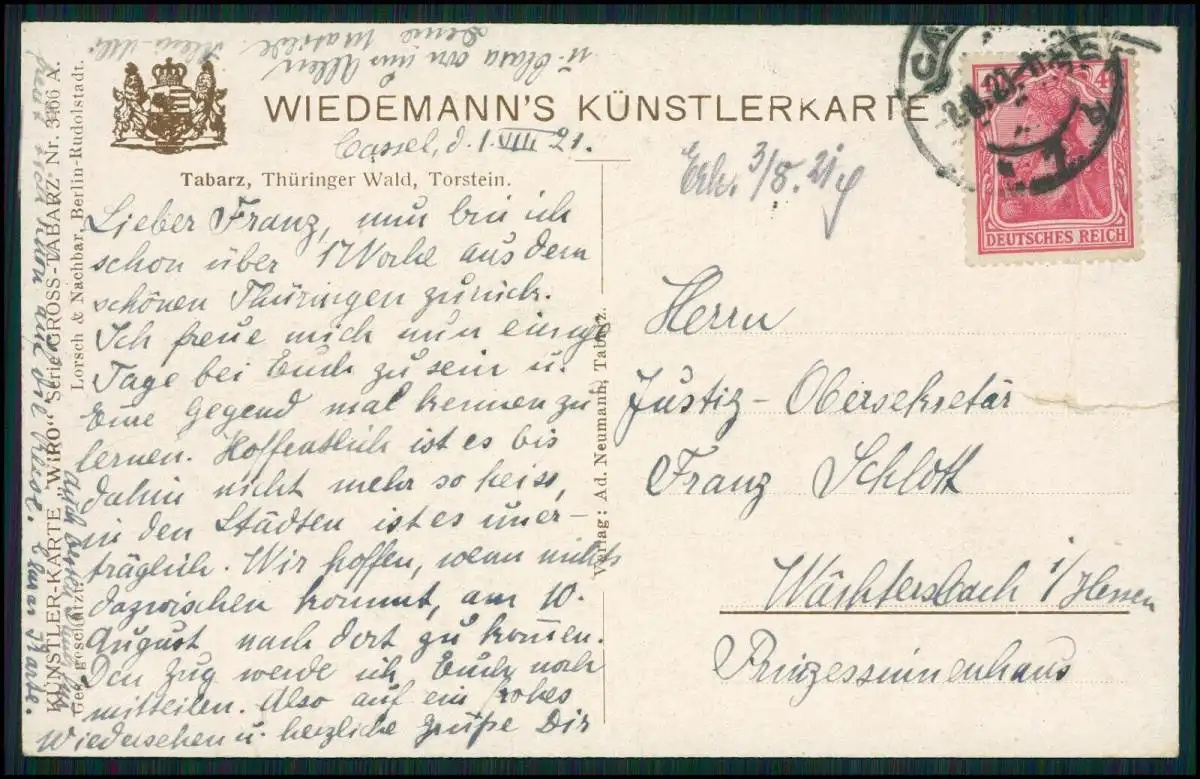 WIEDEMANN'S KÜNSTLERKARTE
Cassel, d. 1. VIII 21.
Tabarz, Thüringer Wald, Torstein.
Lieber Franz, nun bin ich
schon über 1 Woche aus dem
schönen Thüringen zurück.
Ich freue mich nun einige
Tage bei Euch zu sein u.
Eure Gegend mal kennen zu
lernen. Hoffentlich ist es bis
dahin nicht mehr so heiss,
in den Städten ist es uner-
träglich. Wir hoffen, wenn nichts
dazwischen kommt, am 10.
August nach dort zu kommen.
Den Zug werde ich Euch noch
mitteilen. Also auf ein frohes
Wiedersehen u. herzliche Grüße Dir
u. Clara von uns Allen
Deine Mathilde.
freut sich schon auf die Reise.
Karte.
KÜNSTLER-KARTE „WIRO“ Serie GROSS-TABARZ Nr. 3466 A.
Ges. geschützt. Lorsch & Nachbar, Berlin-Rudolstadt.
Verlag: Ad. Neumann, Tabarz.
Erh. 3/8. 21
40
DEUTSCHES REICH
Herrn
Justiz-Obersekretär
Franz Schlott
Wächtersbach i/Hessen
Prinzessinnenhaus